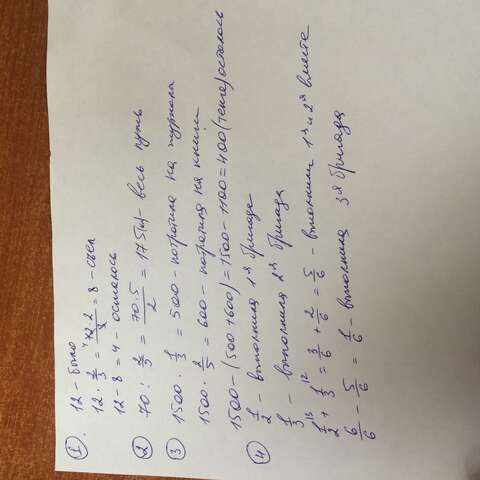 1. 12 – было
12 · 2/3 = 12·2/3 = 8 – съел
12 – 8 = 4 – осталось
2 70 : 2/5 = 70·5/2 = 175(м) – весь путь
3 1500 · 1/3 = 500 – потратила на журналы
1500 · 2/5 = 600 – потратила на книги
1500 – (500 + 600) = 1500 – 1100 = 400 (тенге) осталось
4 1/2 – выполнила 1я бригада
1/3 – выполнила 2я бригада
1/2 \3 + 1/3 \2 = 3/6 + 2/6 = 5/6 – выполнили 1я и 2я вместе
6/6 – 5/6 = 1/6 – выполнила 3я бригада